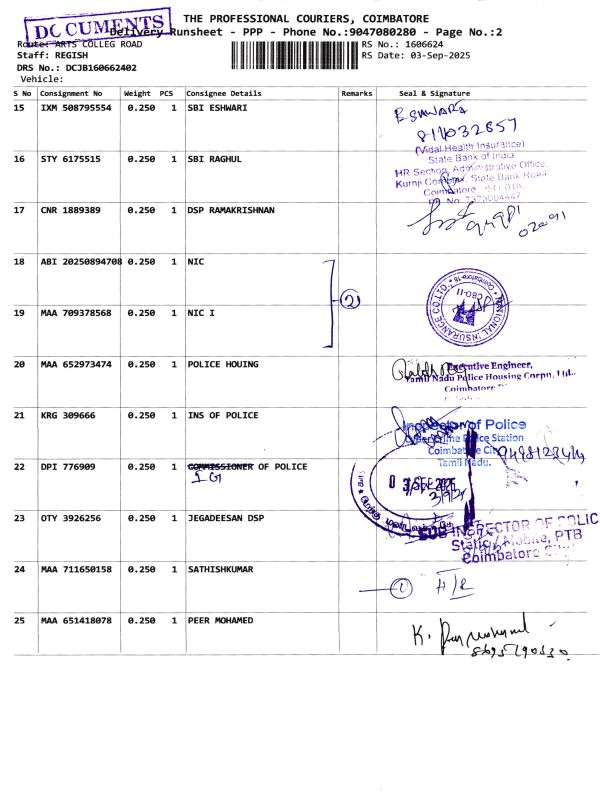 DOCUMENTS
THE PROFESSIONAL COURIERS, COIMBATORE
Delivery Runsheet - PPP - Phone No.:9047080280 - Page No.:2
Route: ARTS COLLEG ROAD
RS No.: 1606624
Staff: REGISH
RS Date: 03-Sep-2025
DRS No.: DCJB160662402
Vehicle:
S No Consignment No Weight PCS Consignee Details Remarks Seal & Signature
15 IXM 508795554 0.250 1 SBI ESHWARI
16 STY 6175515 0.250 1 SBI RAGHUL
(Vidal Health Insurance)
State Bank of India
HR Section, Administrative Office,
State Bank Road
Coimbatore
17 CNR 1889389 0.250 1 DSP RAMAKRISHNAN
18 ABI 20250894708 0.250 1 NIC
(2)
NATIONAL INSURANCE CO.LTD.
19 MAA 709378568 0.250 1 NIC I
20 MAA 652973474 0.250 1 POLICE HOUING
Executive Engineer,
Tamil Nadu Police Housing Corpn. Ltd.,
Coimbatore
21 KRG 309666 0.250 1 INS OF POLICE
Inspector of Police
Cyber Crime Police Station
Coimbatore City
Tamil Nadu.
22 DPI 776909 0.250 1 COMMISSIONER OF POLICE
IG
03 SEP 2025
23 OTY 3926256 0.250 1 JEGADEESAN DSP
SUB INSPECTOR OF POLIC
Mobile, PTB
Coimbatore City
24 MAA 711650158 0.250 1 SATHISHKUMAR
(1) H/R
25 MAA 651418078 0.250 1 PEER MOHAMED